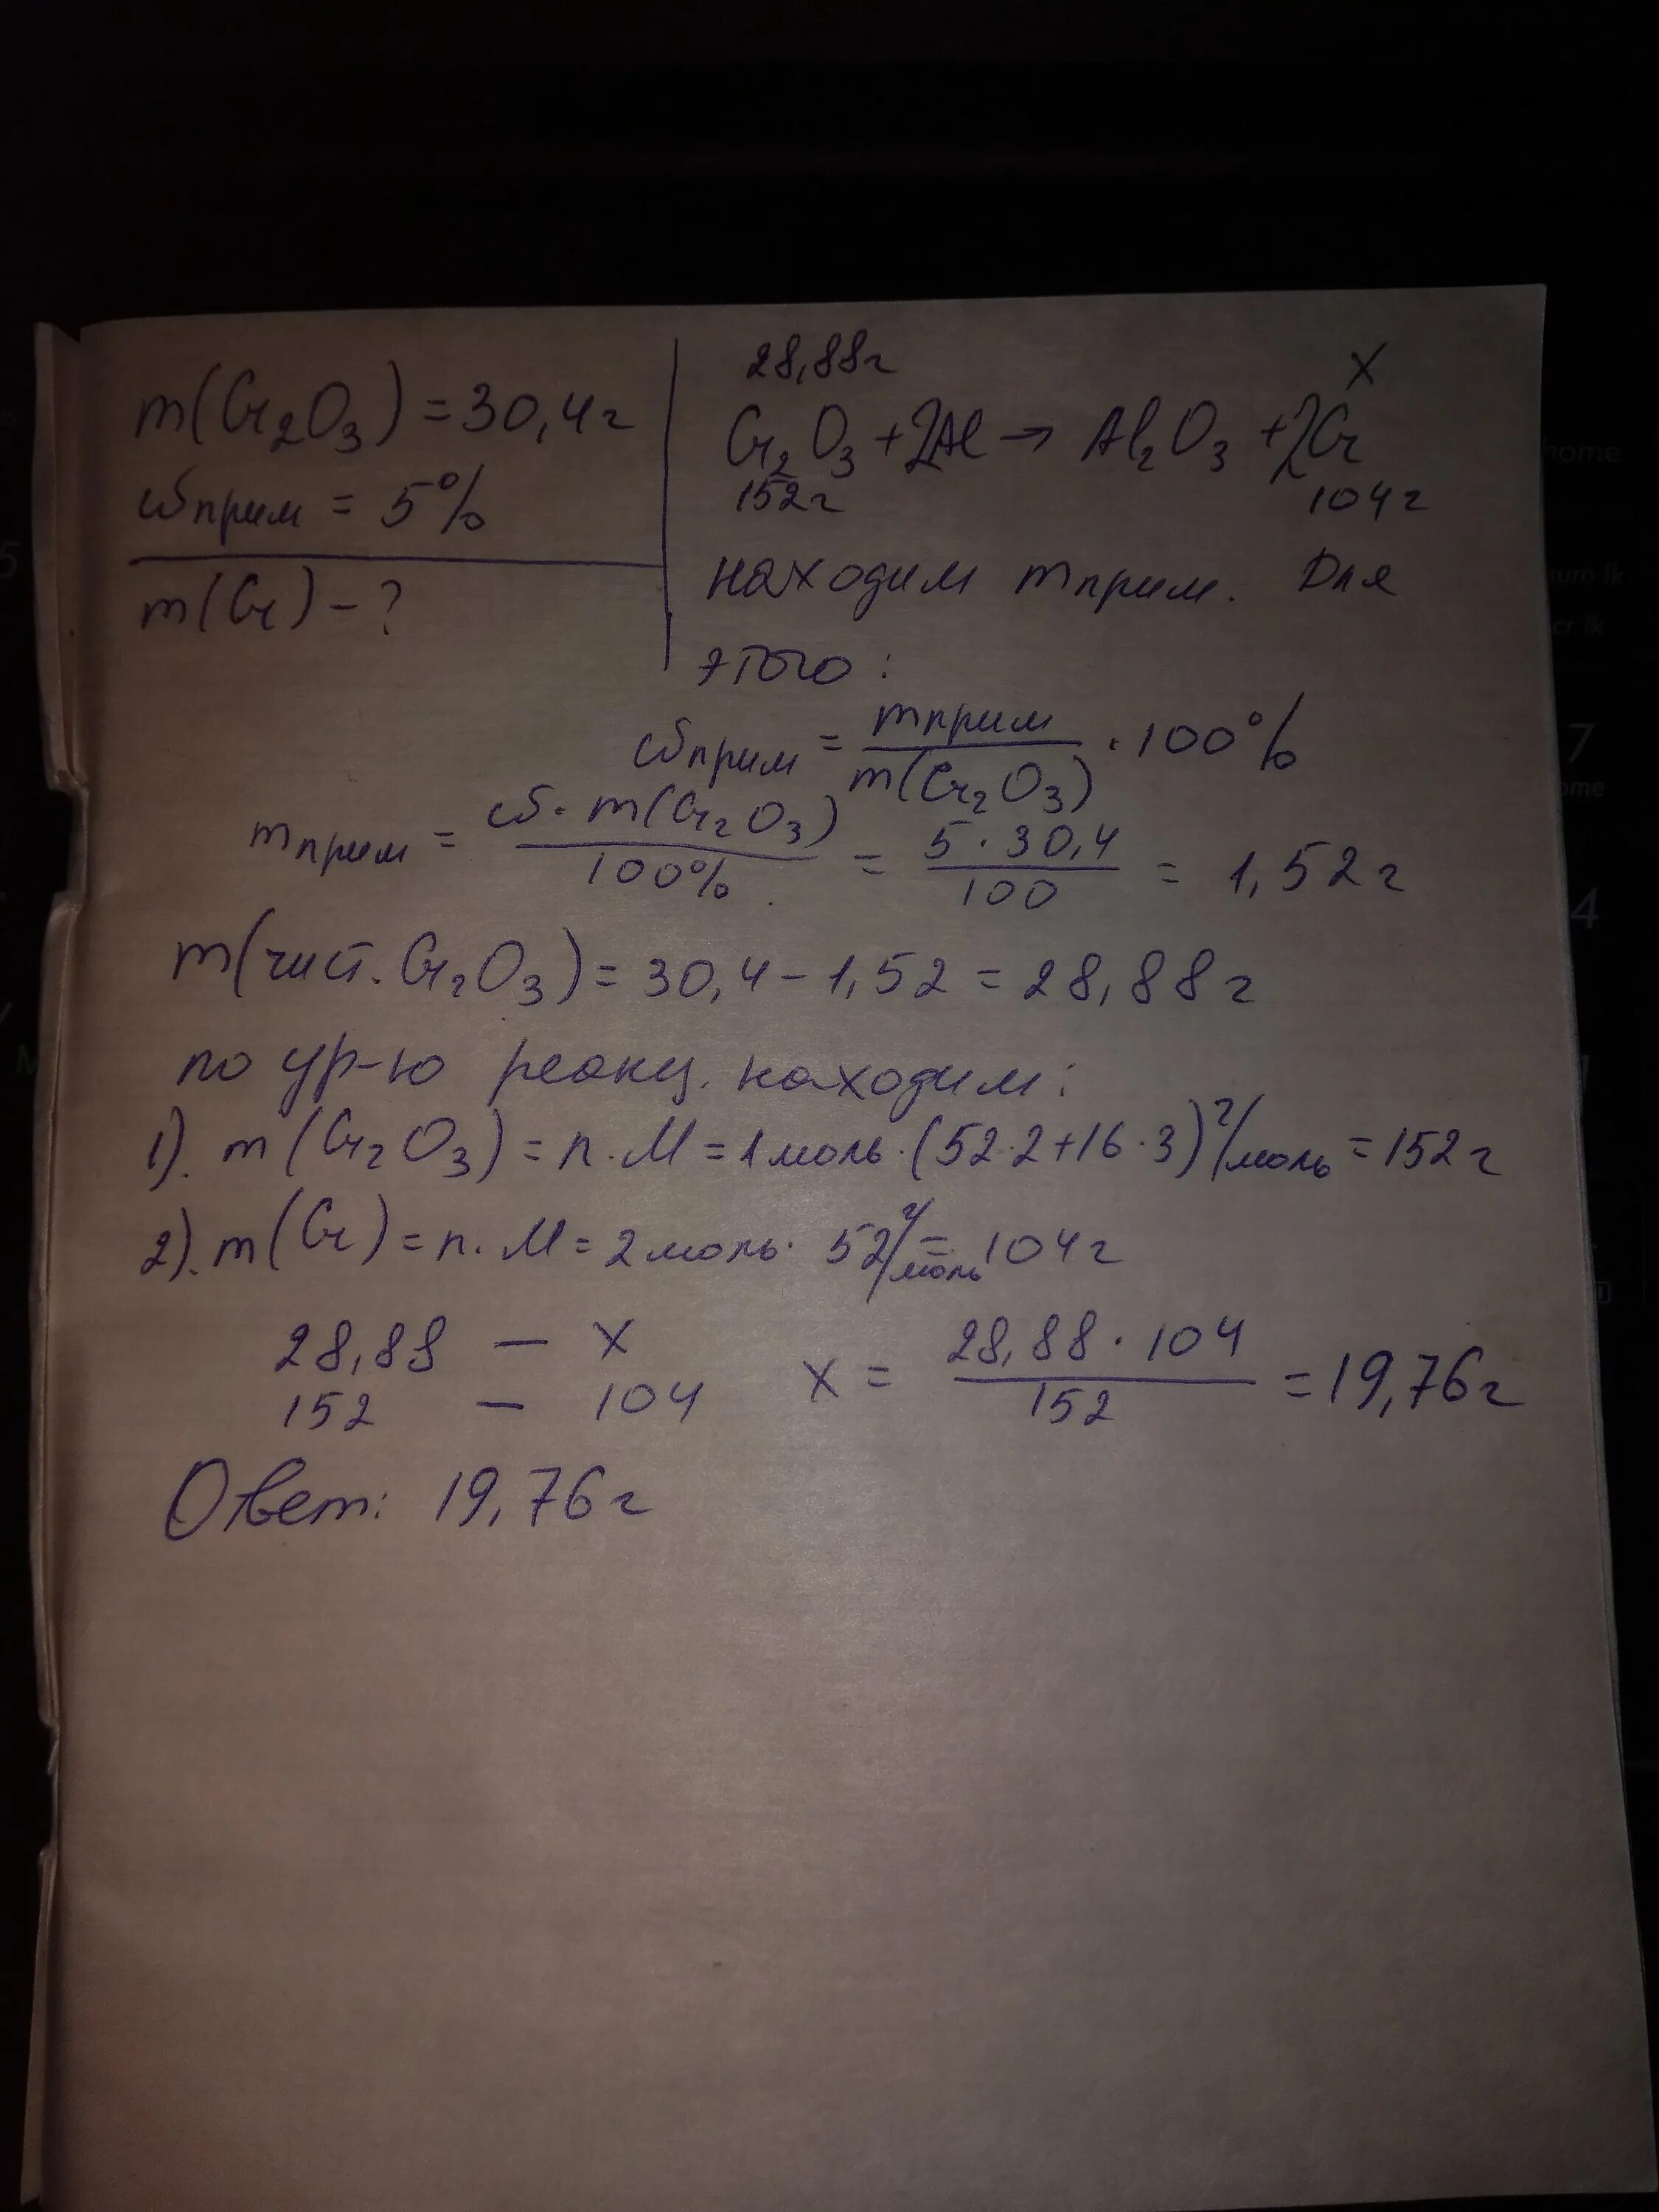 m(Cr₂O₃) = 30,4г
ωприм = 5%
m(Cr) - ?
28,88г
x
Cr₂O₃ + 2Al → Al₂O₃ + 2Cr
152г
104г
находим mприм. Для
этого:
ωприм = mприм / m(Cr₂O₃) · 100%
mприм = ω · m(Cr₂O₃) / 100% = 5 · 30,4 / 100 = 1,52г
m(чист. Cr₂O₃) = 30,4 - 1,52 = 28,88г
по ур-ю реакц. находим:
1). m(Cr₂O₃) = n · M = 1 моль · (52·2+16·3) г/моль = 152г
2). m(Cr) = n · M = 2 моль · 52 г/моль = 104г
28,88 — x
152 — 104
x = 28,88 · 104 / 152 = 19,76г
Ответ: 19,76г